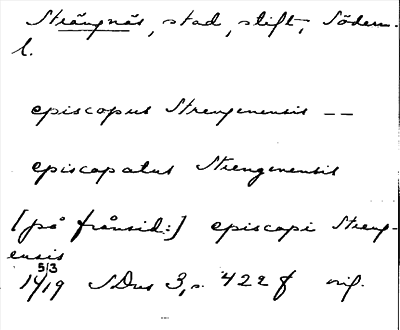 Strängnäs, stad, stift, Söderm.
l.
episcopus Strengenensis --
episcopatus Strengenensis
[på frånsid:] episcopi Streng-
ensis
14 5/3 19 SDns 3, s. 422 f orig.